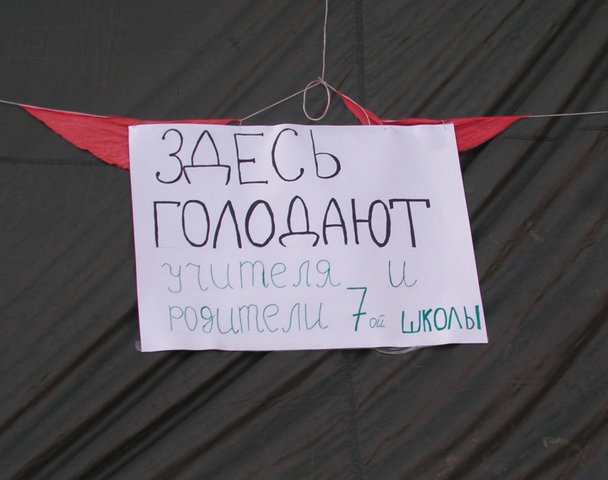 ЗДЕСЬ
ГОЛОДАЮТ
учителя и
родители 7ой школы